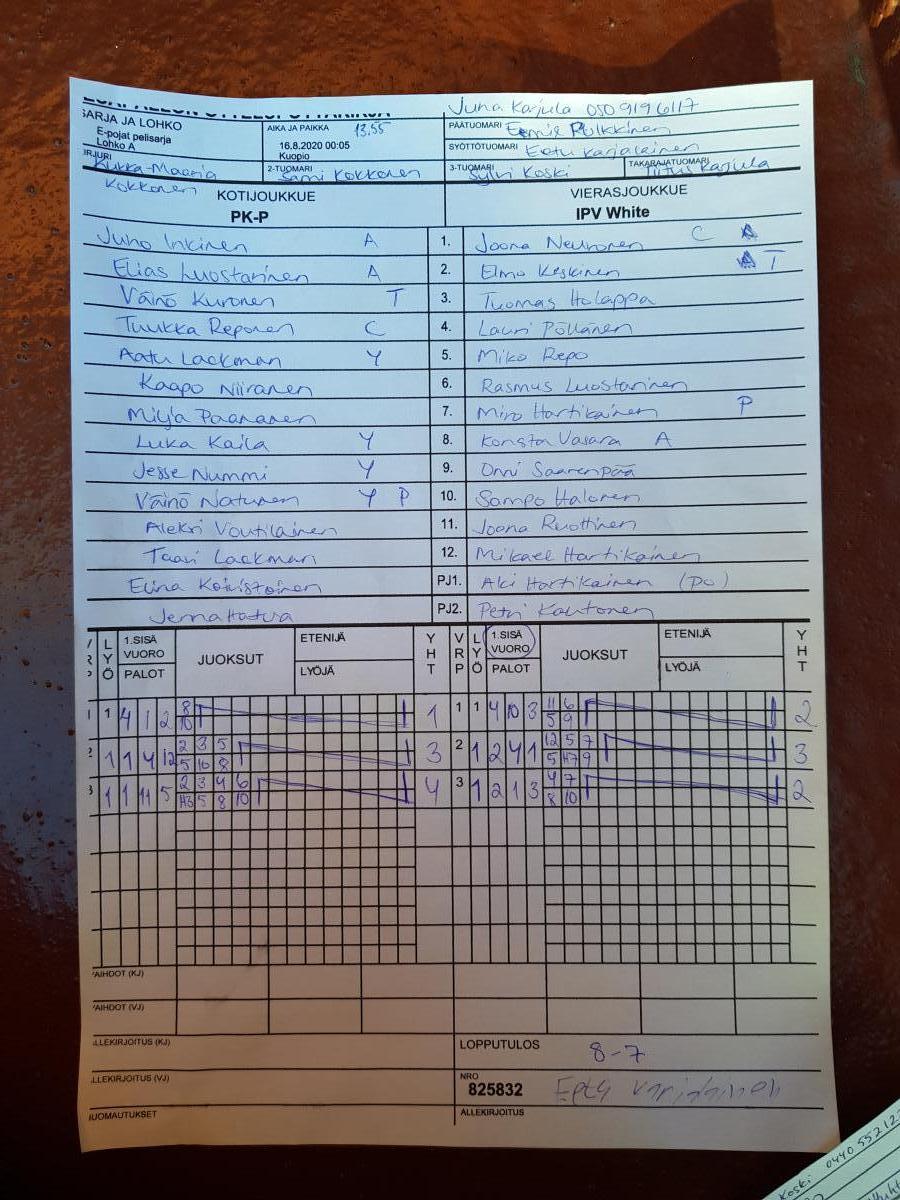 Juha Karjula 050 9196117
SARJA JA LOHKO
E-pojat pelisarja
Lohko A
AIKA JA PAIKKA 13.55
16.8.2020 00:05
Kuopio
PÄÄTUOMARI Eemil Pulkkinen
SYÖTTÖTUOMARI Eetu Karjalainen
IRJURI Kukka-Maaria Kokkonen
2-TUOMARI Sami Kokkonen
3-TUOMARI Sylvi Koski
TAKARAJATUOMARI Tiitus Karjula
KOTIJOUKKUE VIERASJOUKKUE
PK-P IPV White
Juho Inkinen A 1. Joona Neuvonen C
Elias Luostarinen A 2. Elmo Keskinen T
Väinö Kuronen T 3. Tuomas Holappa
Tuukka Reponen C 4. Lauri Pöllänen
Aatu Lackman Y 5. Miko Repo
Kaapo Niiranen 6. Rasmus Luostarinen
Milja Paananen 7. Miro Hartikainen P
Luka Kaila Y 8. Konsta Vasara A
Jesse Nummi Y 9. Onni Saarenpää
Väinö Natunen Y P 10. Sampo Halonen
Aleksi Voutilainen 11. Joona Ruottinen
Taavi Lackman 12. Mikael Hartikainen
Elina Koivistoinen PJ1. Aki Hartikainen (PV)
Jenna Hatva PJ2. Petri Kautonen
LYÖ 1.SISÄ VUORO PALOT JUOKSUT ETENIJÄ LYÖJÄ YHT VRP LYÖ 1.SISÄ VUORO PALOT JUOKSUT ETENIJÄ LYÖJÄ YHT
1 1 4 1 2 8 1 1 1 4 10 3 11 6 2
10 5 9
2 1 1 4 12 2 3 5 3 2 1 2 4 1 12 5 7 3
5 10 8 5 H7 9
3 1 1 11 5 2 3 4 6 4 3 1 2 1 3 4 7 2
H3 5 8 10 8 10
AIHDOT (KJ)
AIHDOT (VJ)
LLEKIRJOITUS (KJ) LOPPUTULOS 8-7
LLEKIRJOITUS (VJ) NRO 825832 Eetu Karjalainen
UOMAUTUKSET ALLEKIRJOITUS
Koski 0440 55212